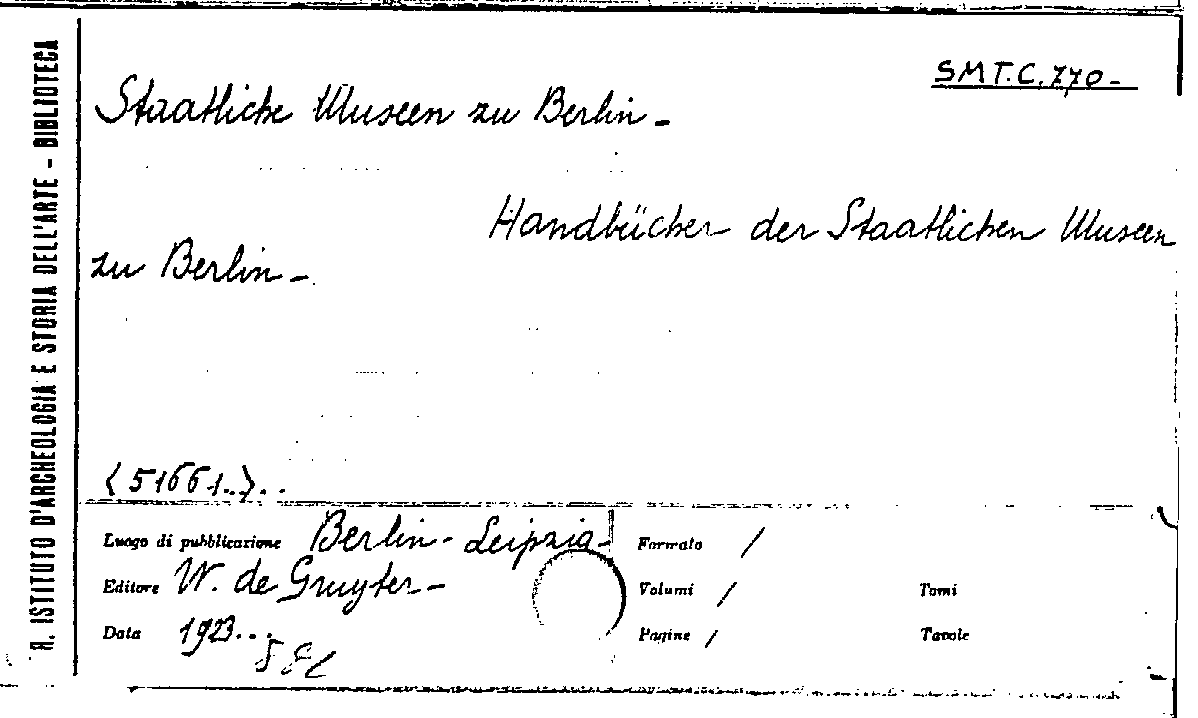 R. ISTITUTO D'ARCHEOLOGIA E STORIA DELL'ARTE - BIBLIOTECA
SMT.C.770-
Staatliche Museen zu Berlin-
Handbücher der Staatlichen Museen
zu Berlin-
(51661..)..
Luogo di pubblicazione Berlin-Leipzig-
Formato /
Editore W. de Gruyter-
Volumi /
Tomi
Data 1923...
Pagine /
Tavole